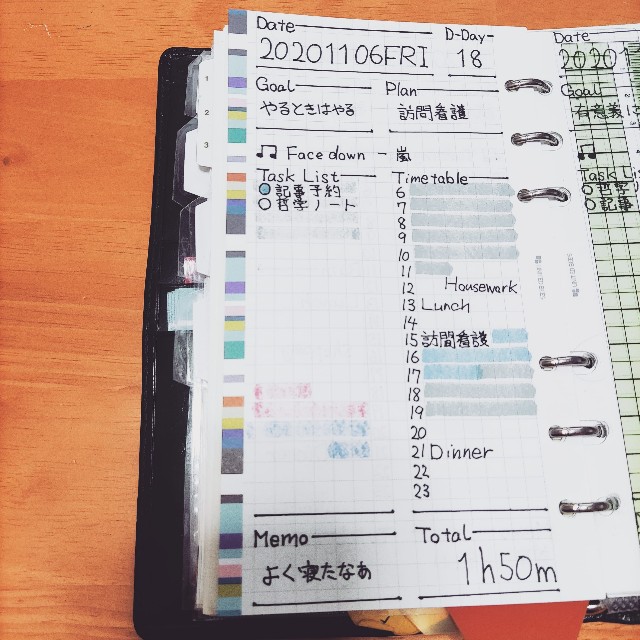 Date D-Day
20201106FRI 18
Goal Plan
やるときはやる 訪問看護
Face down - 嵐
Task List Timetable
記事予約
哲学ノート
6
7
8
9
10
11
12 Housework
13 Lunch
14
15 訪問看護
16
17
18
19
20
21 Dinner
22
23
Memo Total
よく寝たなあ 1h50m
1
2
3
Date
20201
Goal
有意義
Task Li
哲学
記事